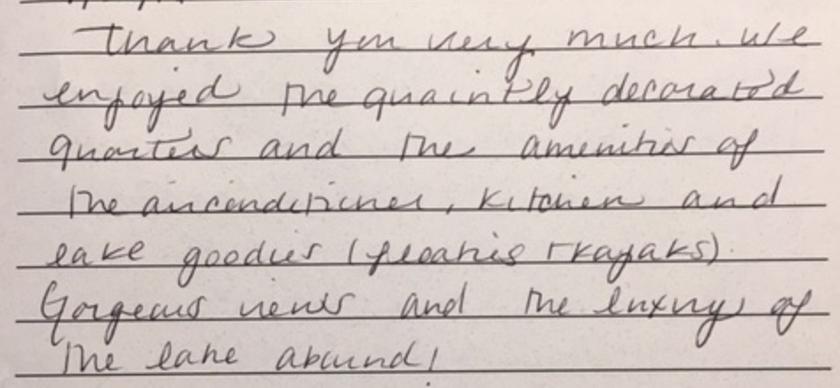 Thank you very much. We
enjoyed the quaintly decorated
quarters and the amenities of
the airconditioner, kitchen and
lake goodies (floaties + kayaks).
Gorgeous views and the luxury of
the lake abound!